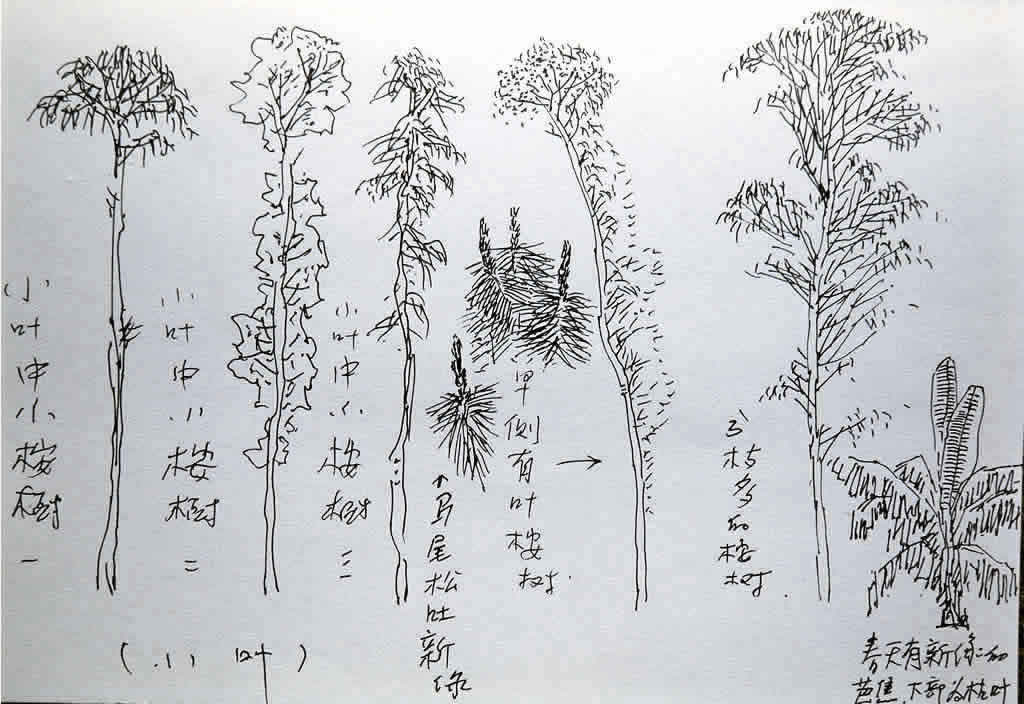 小叶中小桉樹一
小叶中小桉樹二
小叶中小桉樹三
(小叶)
↑马尾松吐新绿
单侧有叶桉树→
枝多的桉树
春天有新绿的
芭蕉,下部为枯叶